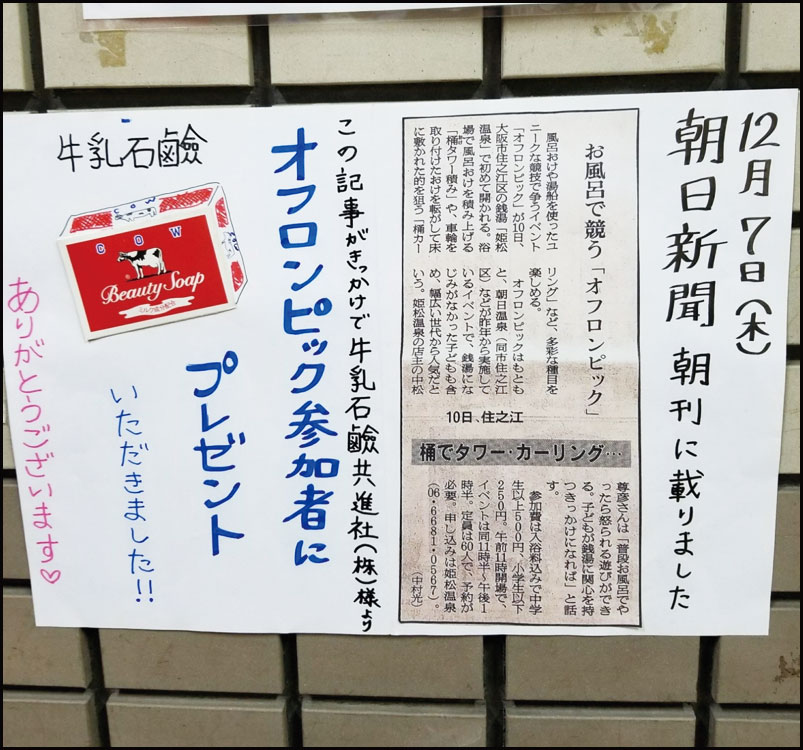 12月7日(木)
朝日新聞 朝刊に載りました
お風呂で競う「オフロンピック」
10日、住之江
桶でタワー・カーリング…
風呂おけや湯船を使ったユ
ニークな競技で争うイベント
「オフロンピック」が10日、
大阪市住之江区の銭湯「姫松
温泉」で初めて開かれる。浴
場で風呂おけを積み上げる
「桶タワー積み」や、車輪を
取り付けたおけを転がして床
に敷かれた的を狙う「桶カー
リング」など、多彩な種目を
楽しめる。
オフロンピックはもとも
と、朝日温泉(同市住之江
区)などが昨年から実施して
いるイベントで、銭湯にな
じみがなかった子どもも含
め、幅広い世代から人気だと
いう。姫松温泉の店主の中松
尊彦さんは「普段お風呂でや
ったら怒られる遊びができ
る。子どもが銭湯に関心を持
つきっかけになれば」と話
す。
参加費は入浴料込みで中学
生以上500円、小学生以下
250円。午前11時開場で、
イベントは同11時半~午後1
時半。定員は60人で、予約が
必要。申し込みは姫松温泉
(06・6681・0567)。
(中村光)
この記事がきっかけで牛乳石鹼共進社(株)様より
オフロンピック参加者に
プレゼント
いただきました!!
牛乳石鹼
COW
Beauty Soap
ミルク成分配合
ありがとうございます♡